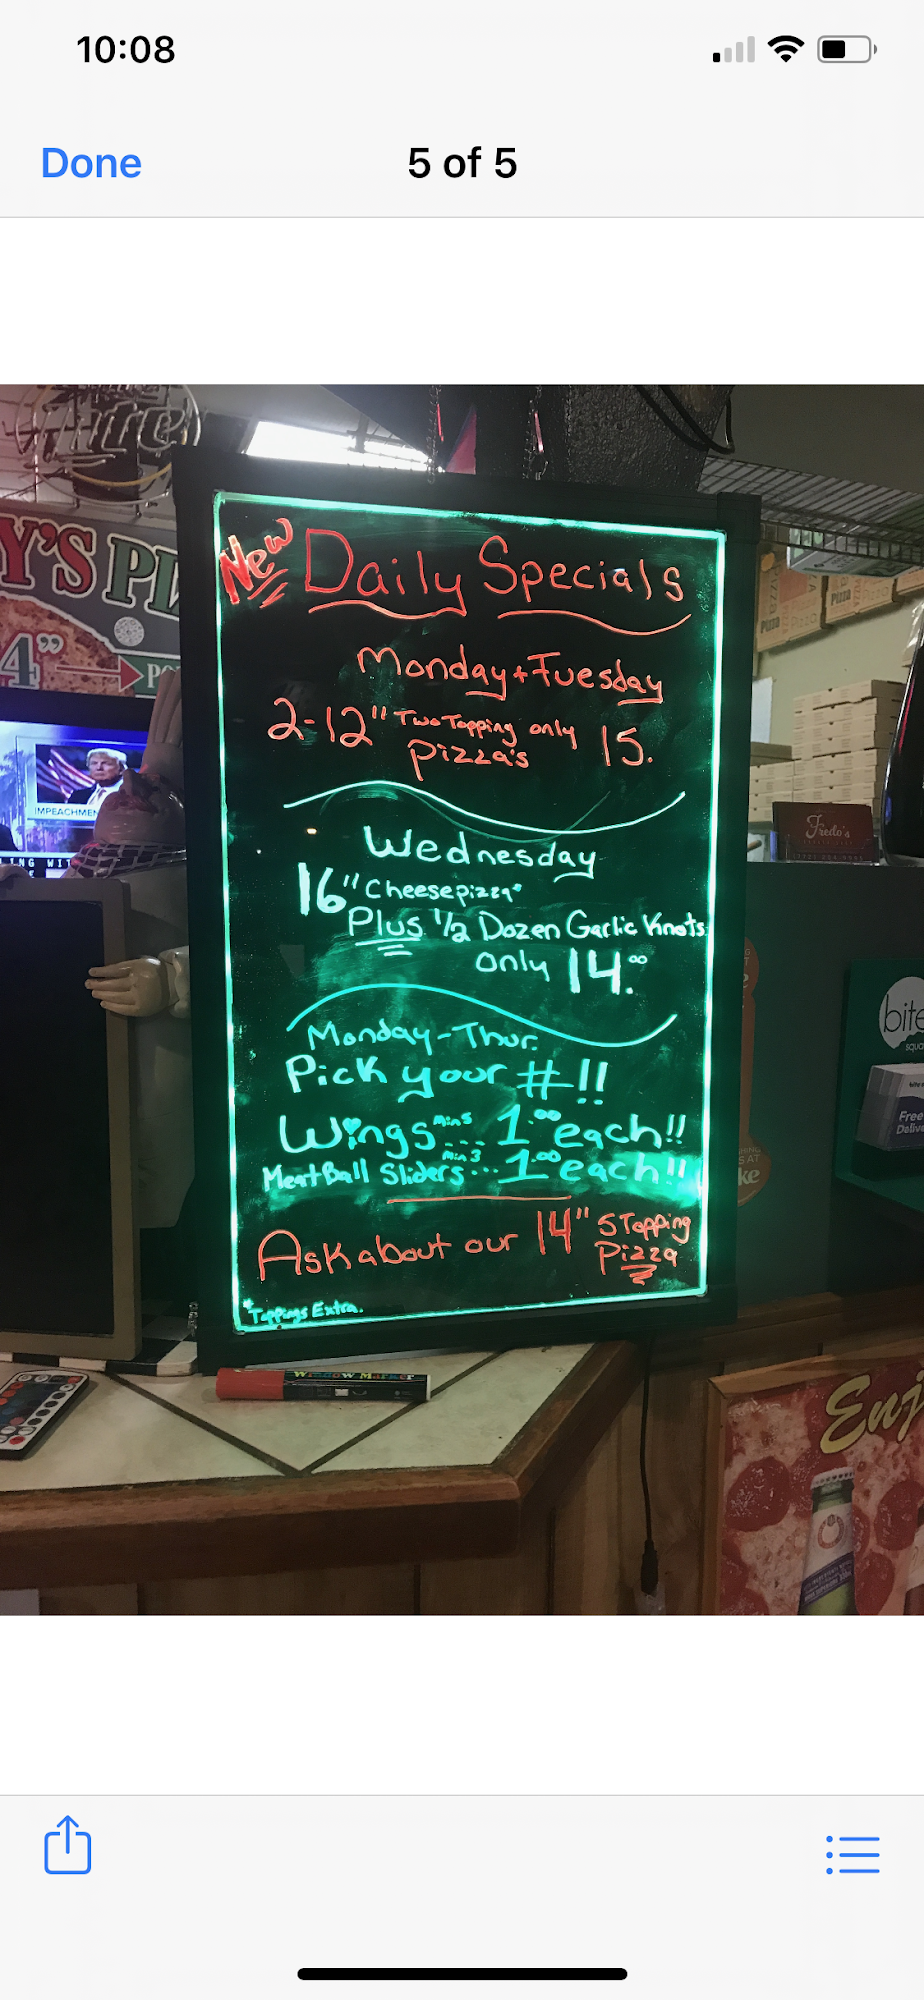 10:08
Done
5 of 5
Lite
Y'S PI
4" PO
IMPEACHMEN
ING WIT
New Daily Specials
Monday + Tuesday
2-12" Two Topping only 15.
Pizza's
Wednesday
16" Cheese pizza*
Plus 1/2 Dozen Garlic Knots
only 14.00
Monday-Thur.
Pick your #!!
Wings min 5 ... 1.00 each!!
MeatBall Sliders min 3 ... 1.00 each!!
Ask about our 14" 5 Topping
Pizza
*Toppings Extra.
Window Marker
Pizza
Fredo's
bite
squa
Free
Delive
ke
Enj